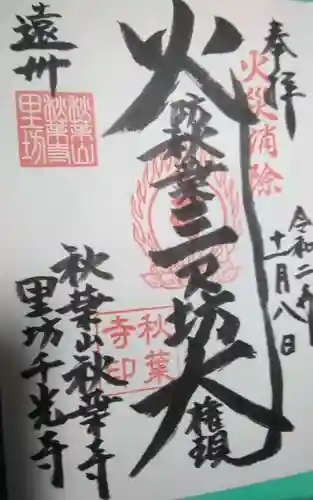 奉拝
火災消除
令和二年
十一月八日
火防秋葉三尺坊大権現
秋葉寺印
遠州
秋葉山秋葉寺
里坊千光寺